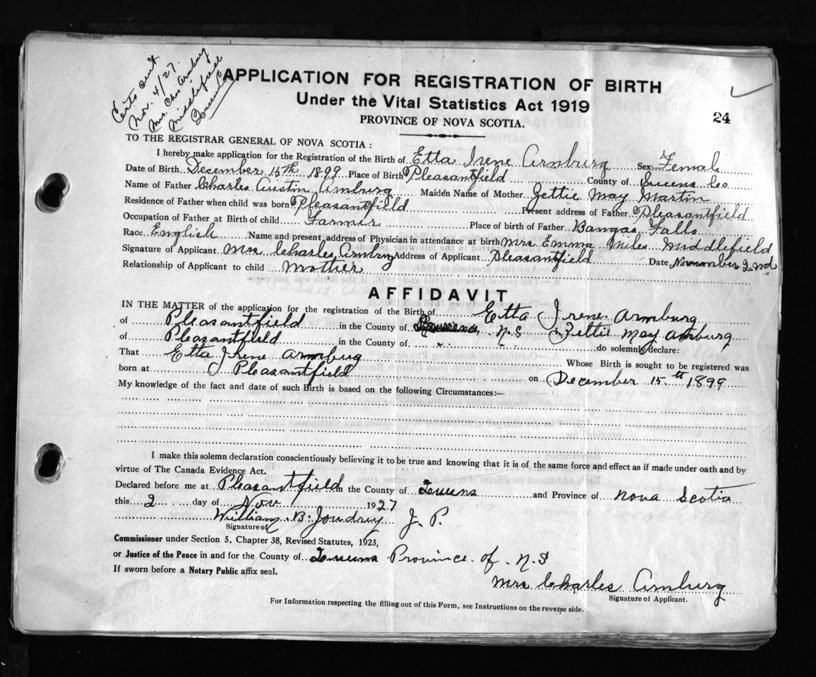 Certs sent
Nov. 4/27.
Mrs. Chas Amburg
Middlefield
Queens Co
APPLICATION FOR REGISTRATION OF BIRTH
Under the Vital Statistics Act 1919
PROVINCE OF NOVA SCOTIA.
24
TO THE REGISTRAR GENERAL OF NOVA SCOTIA :
I hereby make application for the Registration of the Birth of Etta Irene Armburg Sex Femal
Date of Birth December 15th 1899 Place of Birth Pleasantfield County of Queens Co
Name of Father Charles Austin Amburg Maiden Name of Mother Jettie May Martin
Residence of Father when child was born Pleasantfield Present address of Father Pleasantfield
Occupation of Father at Birth of child Farmer Place of birth of Father Bangas Falls
Race English Name and present address of Physician in attendance at birth Mrs Emma Miles Middlefield
Signature of Applicant Mrs Charles Amburg Address of Applicant Pleasantfield Date November 2nd
Relationship of Applicant to child Mother
AFFIDAVIT
IN THE MATTER of the application for the registration of the Birth of Etta Irene Armburg
of Pleasantfield in the County of Queens N.S Jettie May Amburg
of Pleasantfield in the County of " " do solemnly declare:
That Etta Irene Armbug Whose Birth is sought to be registered was
born at Pleasantfield on December 15th 1899
My knowledge of the fact and date of such Birth is based on the following Circumstances:—
I make this solemn declaration conscientiously believing it to be true and knowing that it is of the same force and effect as if made under oath and by
virtue of The Canada Evidence Act.
Declared before me at Pleasantfield in the County of Queens and Province of Nova Scotia
this 2 day of Nov 1927
William B. Joudrey J. P.
Signature of
Commissioner under Section 5, Chapter 38, Revised Statutes, 1923,
or Justice of the Peace in and for the County of Queens Province of N.S
If sworn before a Notary Public affix seal.
Mrs Charles Amburg
Signature of Applicant.
For Information respecting the filling out of this Form, see Instructions on the reverse side.